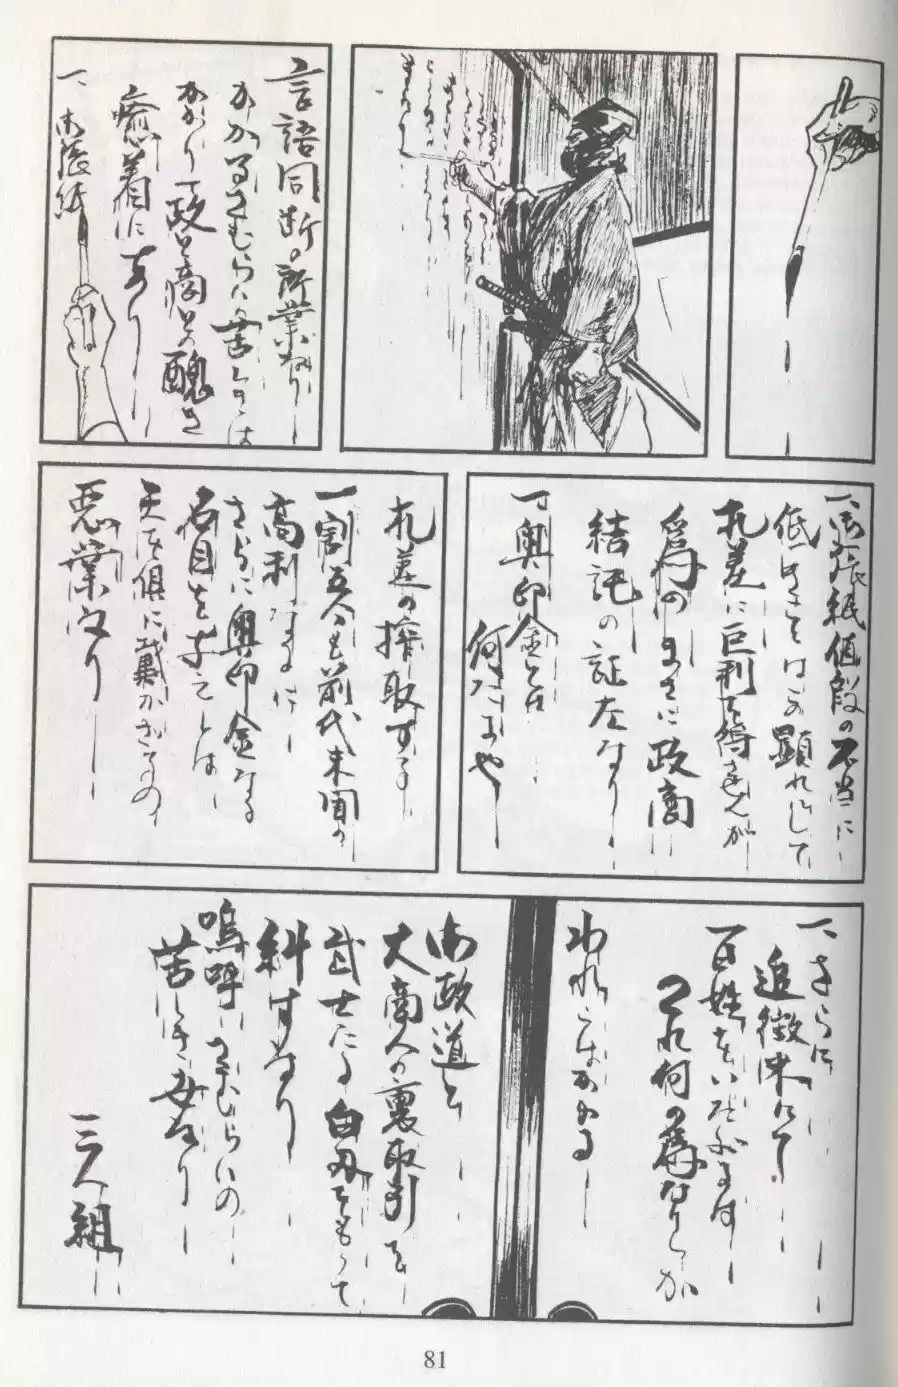 言語同断の所業なり
かかるさむらいの苦しみは
かかりて政と商との醜き
癒着にあり
一、御張紙
一、御張紙値段の不当に
低きことはこの顕れにして
札差に巨利を得させんが
為のまさに政商
結託の証左なり
一、奥印金とは
何なにや
札差の搾取する
一割五分も前代未聞の
高利なるに
さらに奥印金なる
名目を
天を倶に戴かざるの
悪業なり
一、さらに
追徴米にて
百姓をいたぶるは
これ何の為なりしか
われこばかる
御政道と
大商人の裏取引を
武士たる白刃をもって
糾すなり
嗚呼さむらいの
苦しき世なり
三人組
81